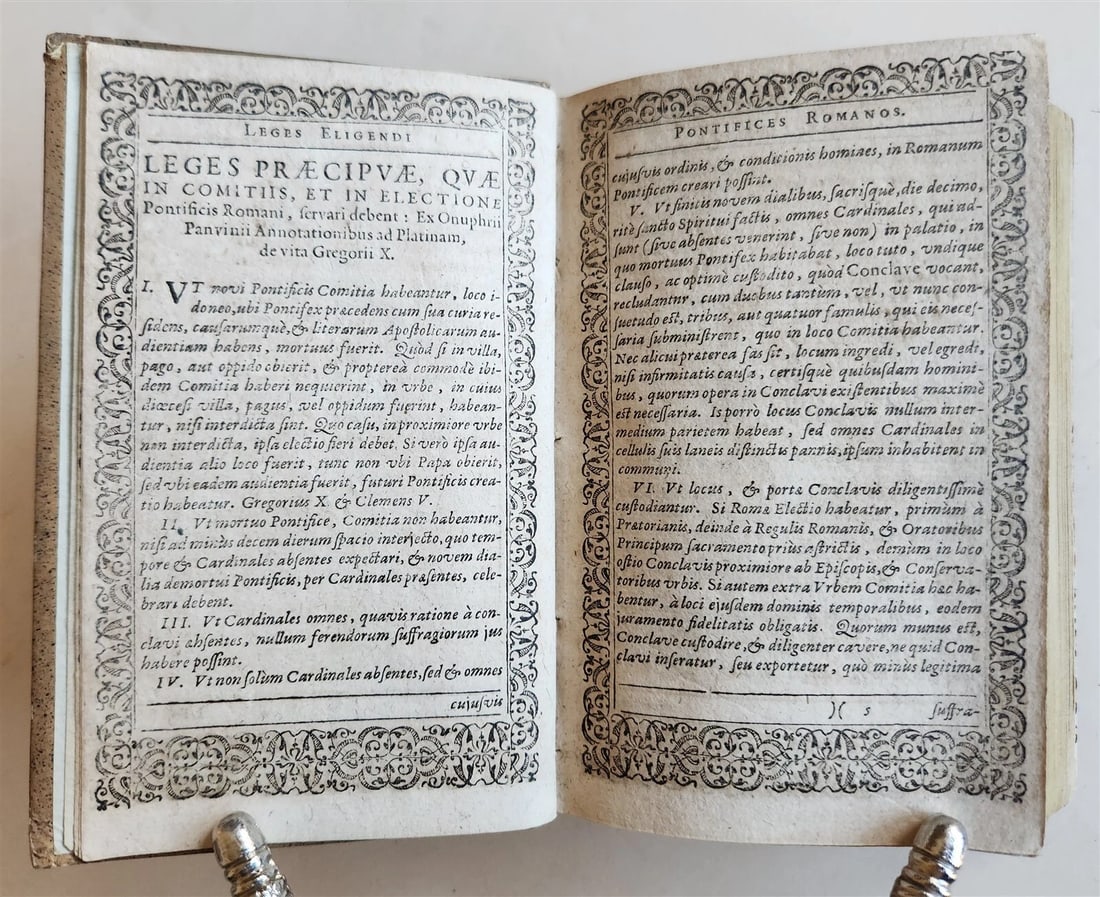 LEGES ELIGENDI
LEGES PRÆCIPVÆ, QVÆ
IN COMITIIS, ET IN ELECTIONE
Pontificis Romani, ſervari debent: Ex Onuphrii
Panvinii Annotationibus ad Platinam,
de vita Gregorii X.
I. VT novi Pontificis Comitia habeantur, loco i-
doneo, ubi Pontifex præcedens cum ſua curia re-
ſidens, cauſarumquè, & literarum Apoſtolicarum au-
dientiam habens, mortuus fuerit. Quòd ſi in villa,
pago, aut oppido obierit, & proptereà commodè ibi-
dem Comitia haberi nequierint, in vrbe, in cuius
diœceſi villa, pagus, vel oppidum fuerint, habean-
tur, niſi interdicta ſint. Quo caſu, in proximiore vrbe
non interdicta, ipſa electio fieri debet. Si verò ipſa au-
dientia alio loco fuerit, tunc non vbi Papa obierit,
ſed vbi eadem audientia fuerit, futuri Pontificis crea-
tio habeatur. Gregorius X. & Clemens V.
II. Vt mortuo Pontifice, Comitia non habeantur,
niſi ad minùs decem dierum ſpacio interjecto, quo tem-
pore & Cardinales abſentes expectari, & novem dia-
lia demortui Pontificis, per Cardinales præſentes, cele-
brari debent.
III. Vt Cardinales omnes, quavis ratione à con-
clavi abſentes, nullum ferendorum ſuffragiorum jus
habere poſſint.
IV. Vt non ſolùm Cardinales abſentes, ſed & omnes
cujuſvis
PONTIFICES ROMANOS.
cujuſvis ordinis, & condicionis homines, in Romanum
Pontificem creari poſſint.
V. Vt finitis novem dialibus, ſacriſquè, die decimo,
ritè ſancto Spiritui factis, omnes Cardinales, qui ad-
ſunt (ſive abſentes venerint, ſive non) in palatio, in
quo mortuus Pontifex habitabat, loco tuto, vndique
clauſo, ac optimè cuſtodito, quod Conclave vocant,
recludantur, cum duobus tantùm, vel, vt nunc con-
ſuetudo eſt, tribus, aut quatuor famulis, qui eis neceſ-
ſaria ſubminiſtrent, quo in loco Comitia habeantur.
Nec alicui præterea fas ſit, locum ingredi, vel egredi,
niſi infirmitatis cauſa, certiſque quibuſdam homini-
bus, quorum opera in Conclavi exiſtentibus maximè
eſt neceſſaria. Is porrò locus Conclavis nullum inter-
medium parietem habeat, ſed omnes Cardinales in
cellulis ſuis laneis diſtinctis pannis, ipſum inhabitent in
communi.
VI. Vt locus, & porta Conclavis diligentiſſimè
cuſtodiantur. Si Romæ Electio habeatur, primùm à
Prætorianis, deinde à Regulis Romanis, & Oratoribus
Principum ſacramento priùs aſtrictis, demùm in loco
oſtio Conclavis proximiore ab Epiſcopis, & Conſerva-
toribus vrbis. Si autem extra Vrbem Comitia hæc ha-
bentur, à loci ejuſdem dominis temporalibus, eodem
juramento fidelitatis obligatis. Quorum munus eſt,
Conclave cuſtodire, & diligenter cavere, ne quid Con-
clavi inſeratur, ſeu exportetur, quò minùs legitima
)( 5 ſuffra-